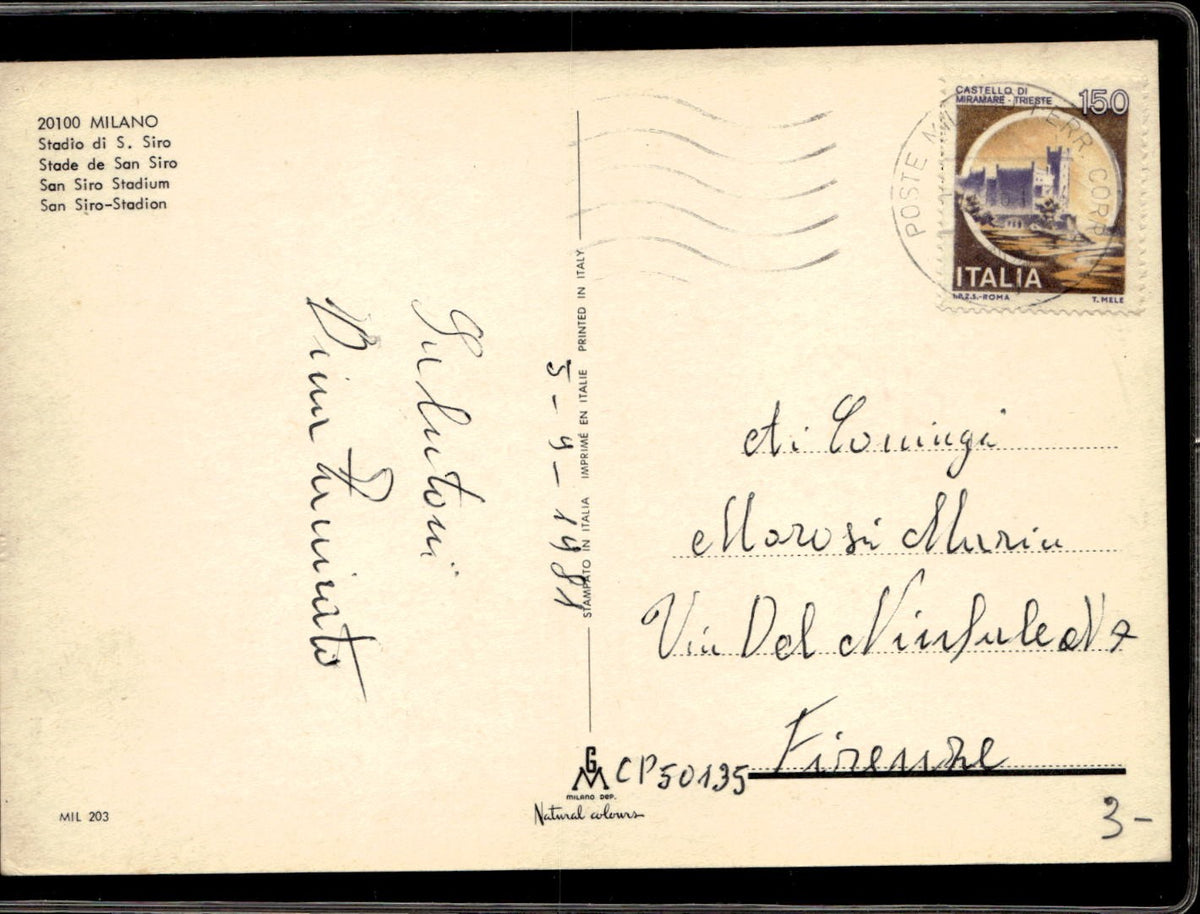 20100 MILANO
Stadio di S. Siro
Stade de San Siro
San Siro Stadium
San Siro-Stadion
Salutoni
5-9-1981
STAMPATO IN ITALIA IMPRIMÉ EN ITALIE PRINTED IN ITALY
CASTELLO DI
MIRAMARE - TRIESTE 150
ITALIA
I.P.Z.S.-ROMA T. MELE
POSTE FERR. CORR
Ai Coniugi
Morosi Maria
Via Del
Firenze
GM
MILANO DEP.
Natural colours
CP50135
MIL 203
3-